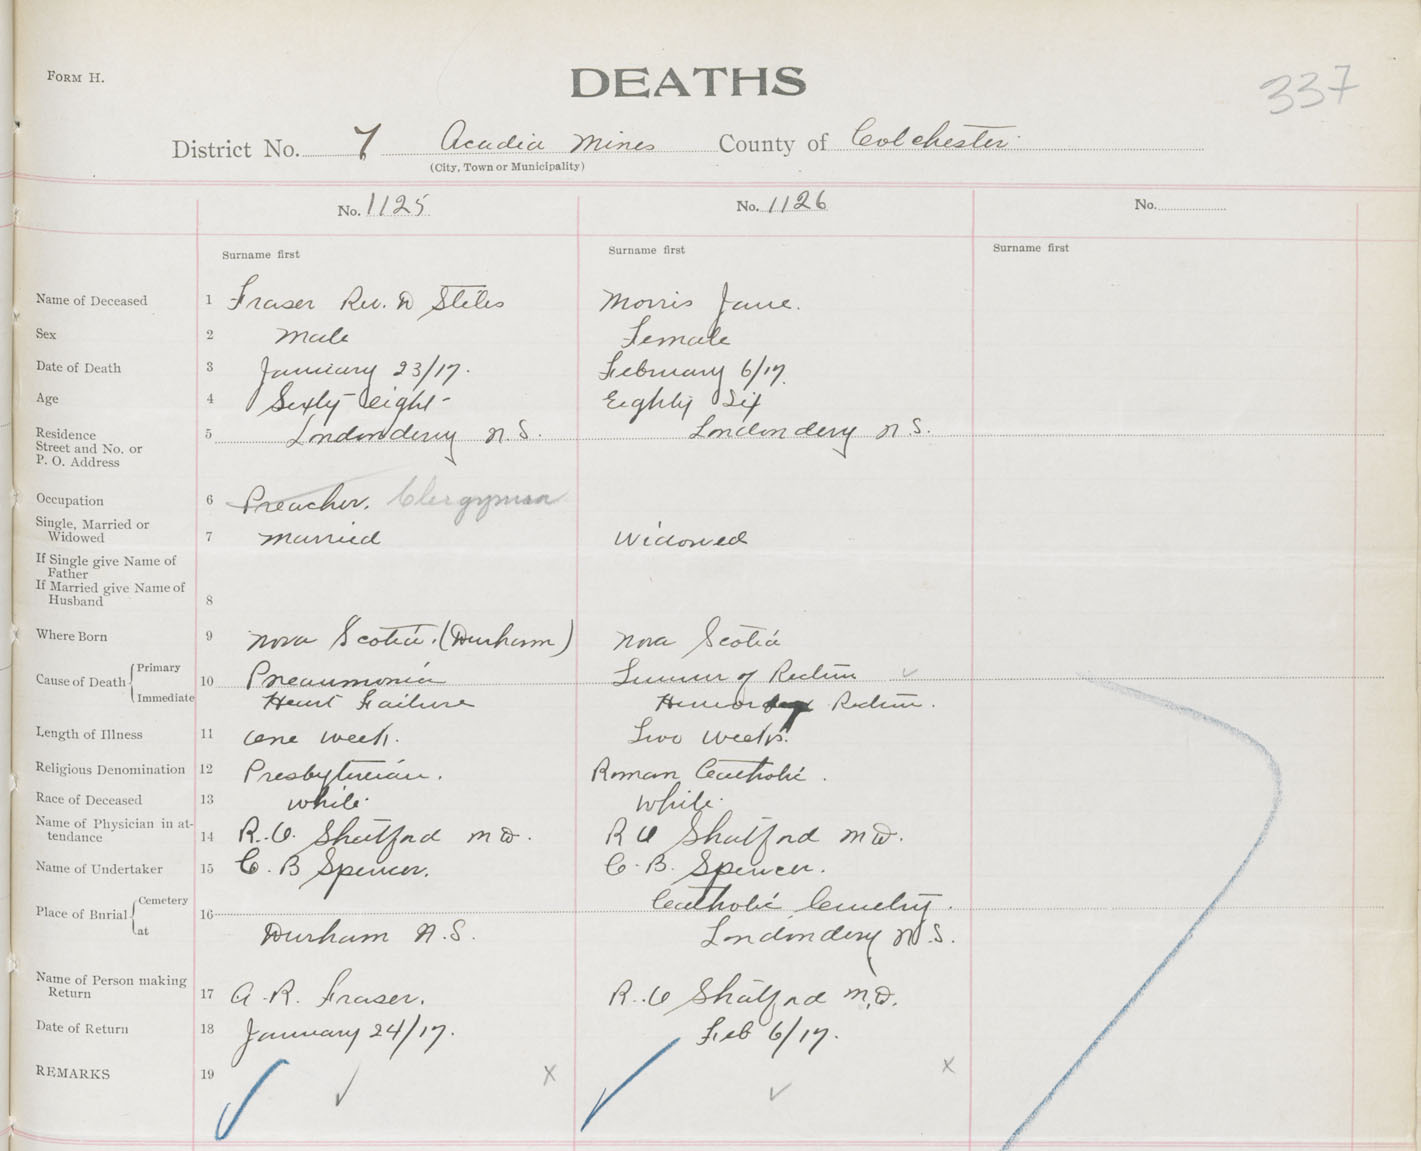 FORM H.
DEATHS
337
District No. 7 Acadia Mines County of Colchester
(City, Town or Municipality)
No. 1125 No. 1126 No.
Surname first Surname first Surname first
Name of Deceased 1 Fraser Rev. D Stiles Morris Jane.
Sex 2 Male Female
Date of Death 3 January 23/17. February 6/17.
Age 4 Sixty eight Eighty Six
Residence Street and No. or P. O. Address 5 Londonderry N.S. Londonderry N.S.
Occupation 6 Preacher. Clergyman
Single, Married or Widowed 7 Married Widowed
If Single give Name of Father
If Married give Name of Husband 8
Where Born 9 Nova Scotia. (Durham) Nova Scotia
Cause of Death Primary 10 Pneaumonia of Rectum
Immediate Heart Failure Rectum.
Length of Illness 11 One week. Two weeks.
Religious Denomination 12 Presbyterian. Roman Catholic.
Race of Deceased 13 White. White.
Name of Physician in attendance 14 R. O. Shatford M D. R O Shatford M D.
Name of Undertaker 15 C. B Spencer. C. B. Spencer.
Place of Burial Cemetery 16 Catholic Cemetry.
at Durham N.S. Londonderry N.S.
Name of Person making Return 17 A. R. Fraser. R. O Shatford M.D.
Date of Return 18 January 24/17. Feb 6/17.
REMARKS 19 x x